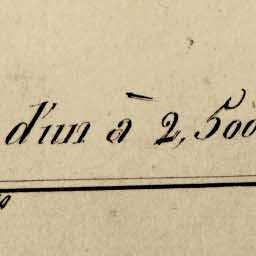 d'un à 2,500